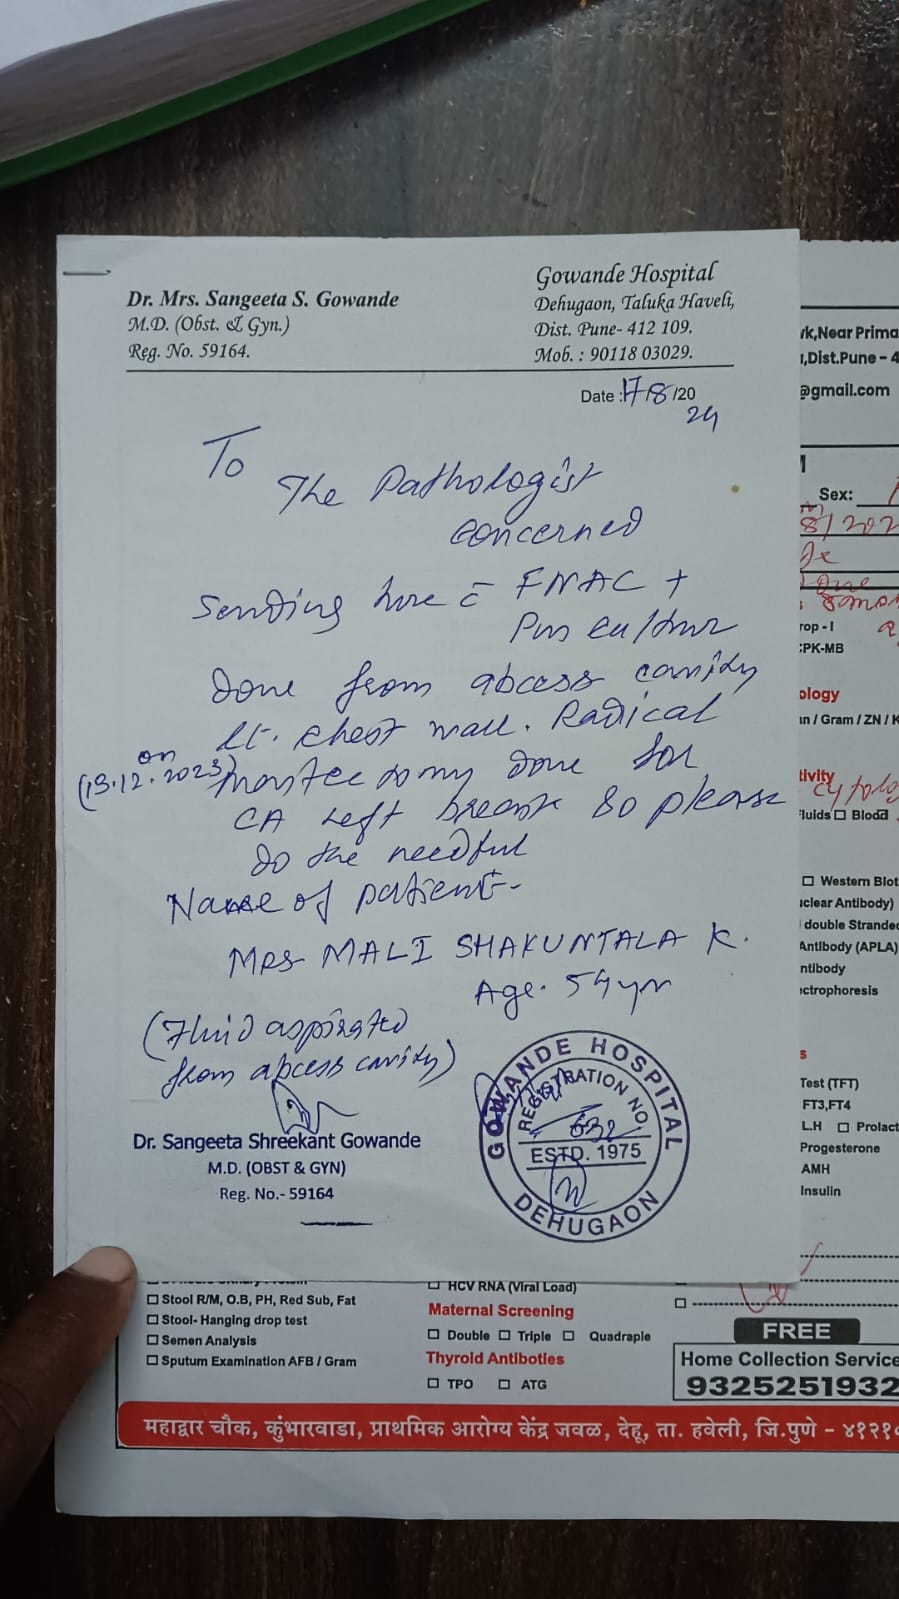 Dr. Mrs. Sangeeta S. Gowande
M.D. (Obst. & Gyn.)
Reg. No. 59164.
Gowande Hospital
Dehugaon, Taluka Haveli,
Dist. Pune- 412 109.
Mob. : 90118 03029.
Date :17/8/20
24
To
The Pathologist
concerned
Sending here c̄ FNAC +
Pus culture
done from abcess cavity
Lt. chest wall. Radical
on
(13.12.2023) mastectomy done for
CA Left breast so please
do the needful
Name of patient-
MRS MALI SHAKUNTALA K.
Age. 54 yr
(Fluid aspirated
from abcess cavity)
Dr. Sangeeta Shreekant Gowande
M.D. (OBST & GYN)
Reg. No.- 59164
GOWANDE HOSPITAL
REGISTRATION NO.
632
ESTD. 1975
DEHUGAON
k,Near Prima
,Dist.Pune - 4
@gmail.com
Sex:
8/202
rop - I
CPK-MB
ology
n / Gram / ZN / K
tivity
cytolo
luids ☐ Blood
☐ Western Blot
clear Antibody)
double Strande
Antibody (APLA)
ntibody
ctrophoresis
s
Test (TFT)
FT3,FT4
L.H ☐ Prolact
Progesterone
AMH
Insulin
☐ Stool R/M, O.B, PH, Red Sub, Fat
☐ Stool- Hanging drop test
☐ Semen Analysis
☐ Sputum Examination AFB / Gram
☐ HCV RNA (Viral Load)
Maternal Screening
☐ Double ☐ Triple ☐ Quadraple
Thyroid Antiboties
☐ TPO ☐ ATG
FREE
Home Collection Service
9325251932
महाद्वार चौक, कुंभारवाडा, प्राथमिक आरोग्य केंद्र जवळ, देहू, ता. हवेली, जि.पुणे - ४१२१०